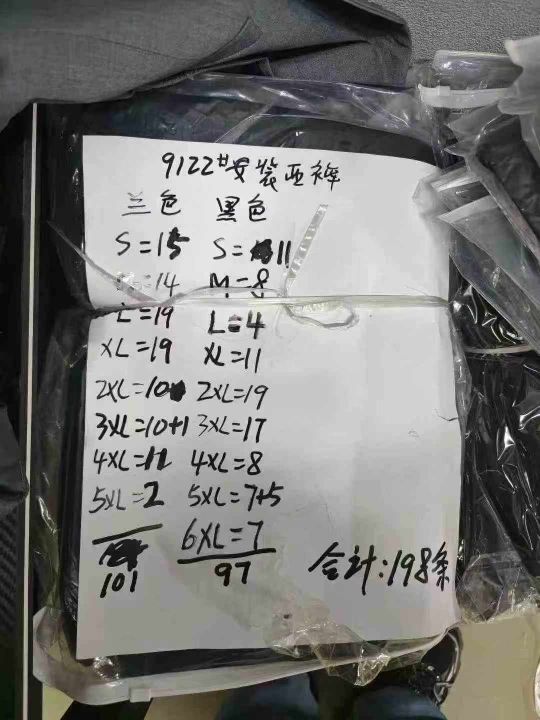 9122#安装西裤
兰色 黑色
S=15 S=11
=14 M=8
L=19 L=4
XL=19 XL=11
2XL=10 2XL=19
3XL=10+1 3XL=17
4XL=12 4XL=8
5XL=2 5XL=7+5
6XL=7
101 97
合计:198条